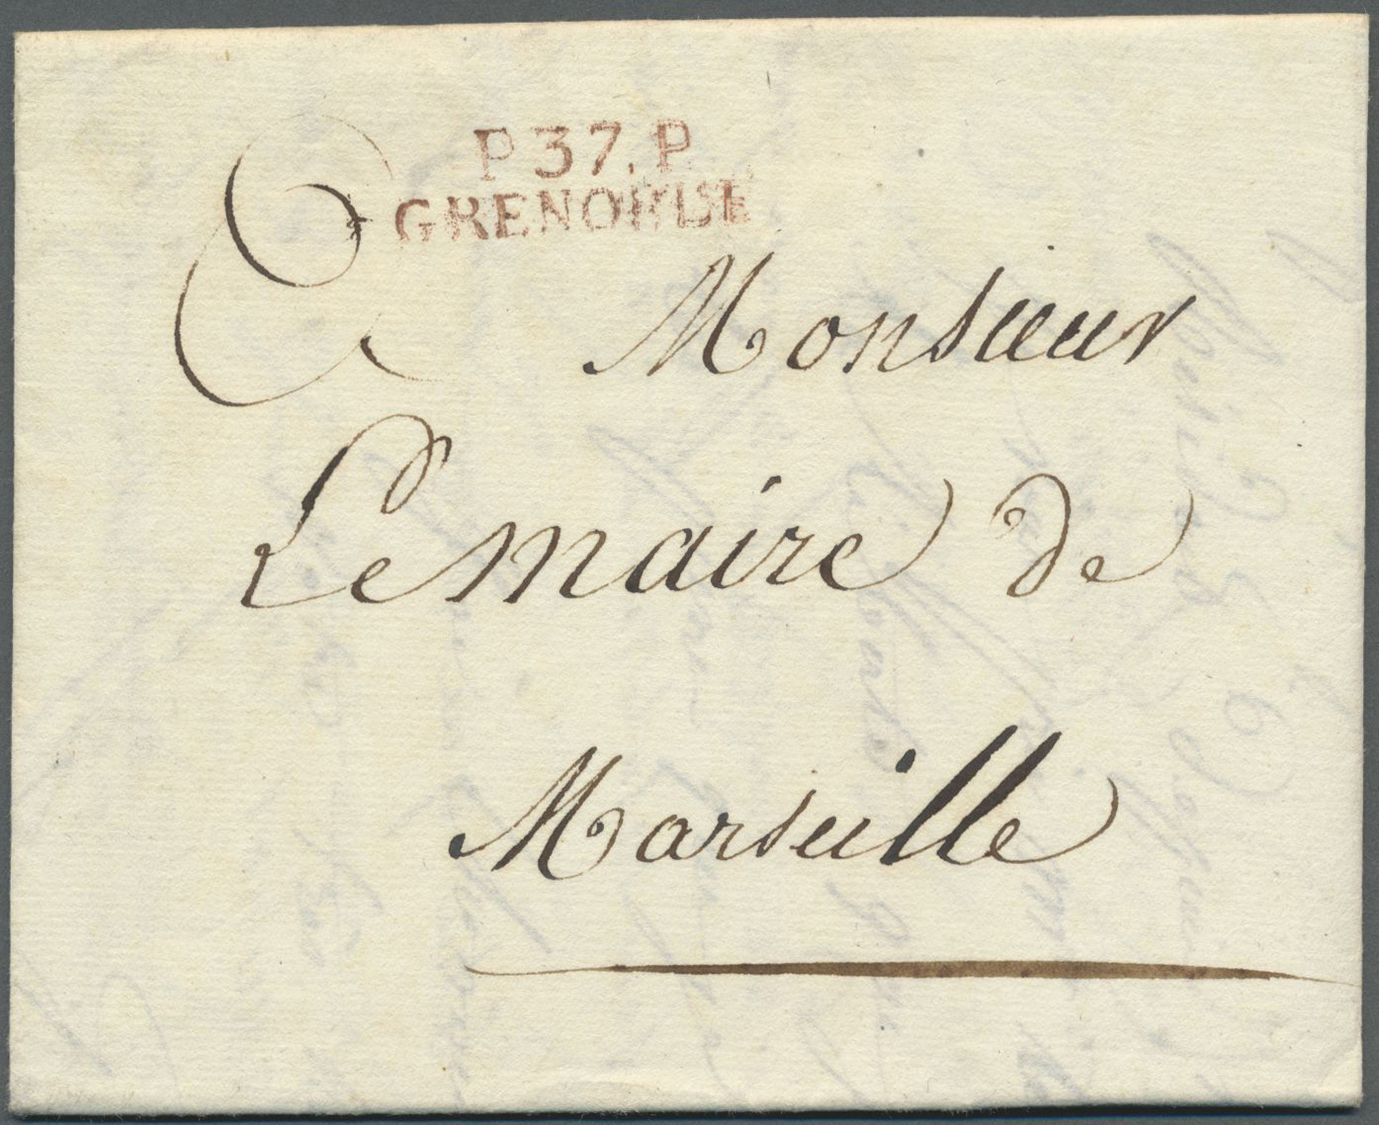 P 37. P
GRENOBLE
Monsieur
Lemaire de
Marseille